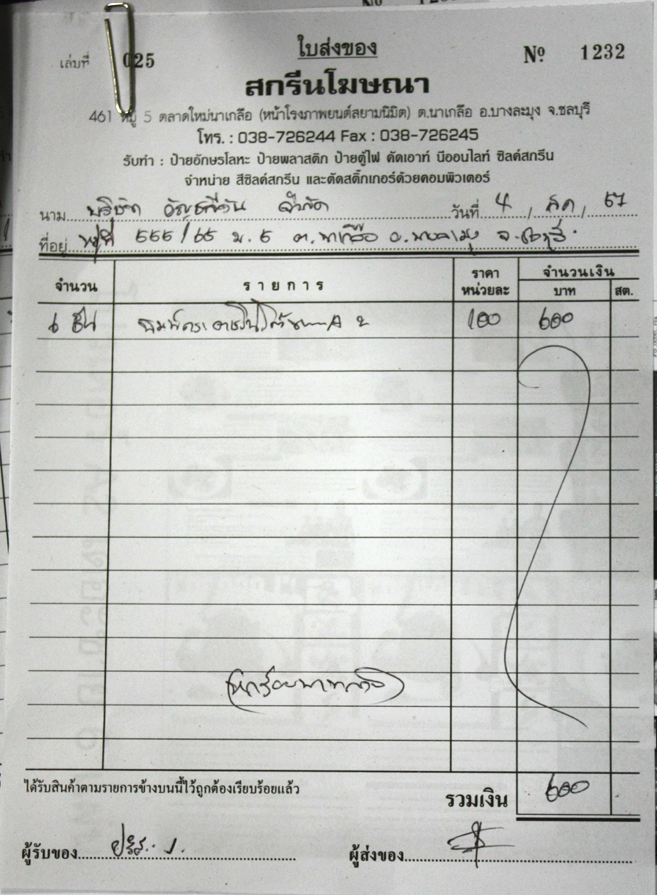 ใบส่งของ
เล่มที่ 025
Nº 1232
สกรีนโฆษณา
461 หมู่ 5 ตลาดใหม่นาเกลือ (หน้าโรงภาพยนต์สยามนิมิต) ต.นาเกลือ อ.บางละมุง จ.ชลบุรี
โทร. : 038-726244 Fax : 038-726245
รับทำ : ป้ายอักษรโลหะ ป้ายพลาสติก ป้ายตู้ไฟ คัดเอาท์ นีออนไลท์ ซิลค์สกรีน
จำหน่าย สีซิลค์สกรีน และตัดสติ๊กเกอร์ด้วยคอมพิวเตอร์
นาม บริษัท จำกัด วันที่ 4 / สค / 57
ที่อยู่ 555/65 ม.5 ต.นาเกลือ อ.บางละมุง จ.ชลบุรี
จำนวน รายการ ราคาหน่วยละ จำนวนเงิน บาท สต.
6 A2 100 600
(หกร้อยบาทถ้วน)
ได้รับสินค้าตามรายการข้างบนนี้ไว้ถูกต้องเรียบร้อยแล้ว
รวมเงิน 600
ผู้รับของ
ผู้ส่งของ